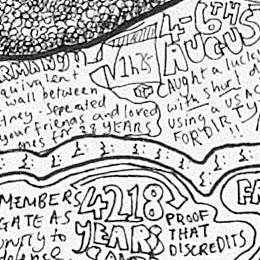 4-6TH
AUGUS
RMANY
quivalent
wall between
tney. Seperated
your friends and loved
ones for 28 YEARS
1h25
AUGHT a lucky
with shurl d
using a USAC
FOR DIRTY
!!
MEMBERS
GATE AS
unity to
defense
4218
YEARS
PROOF
THAT
DISCREDITS
FA